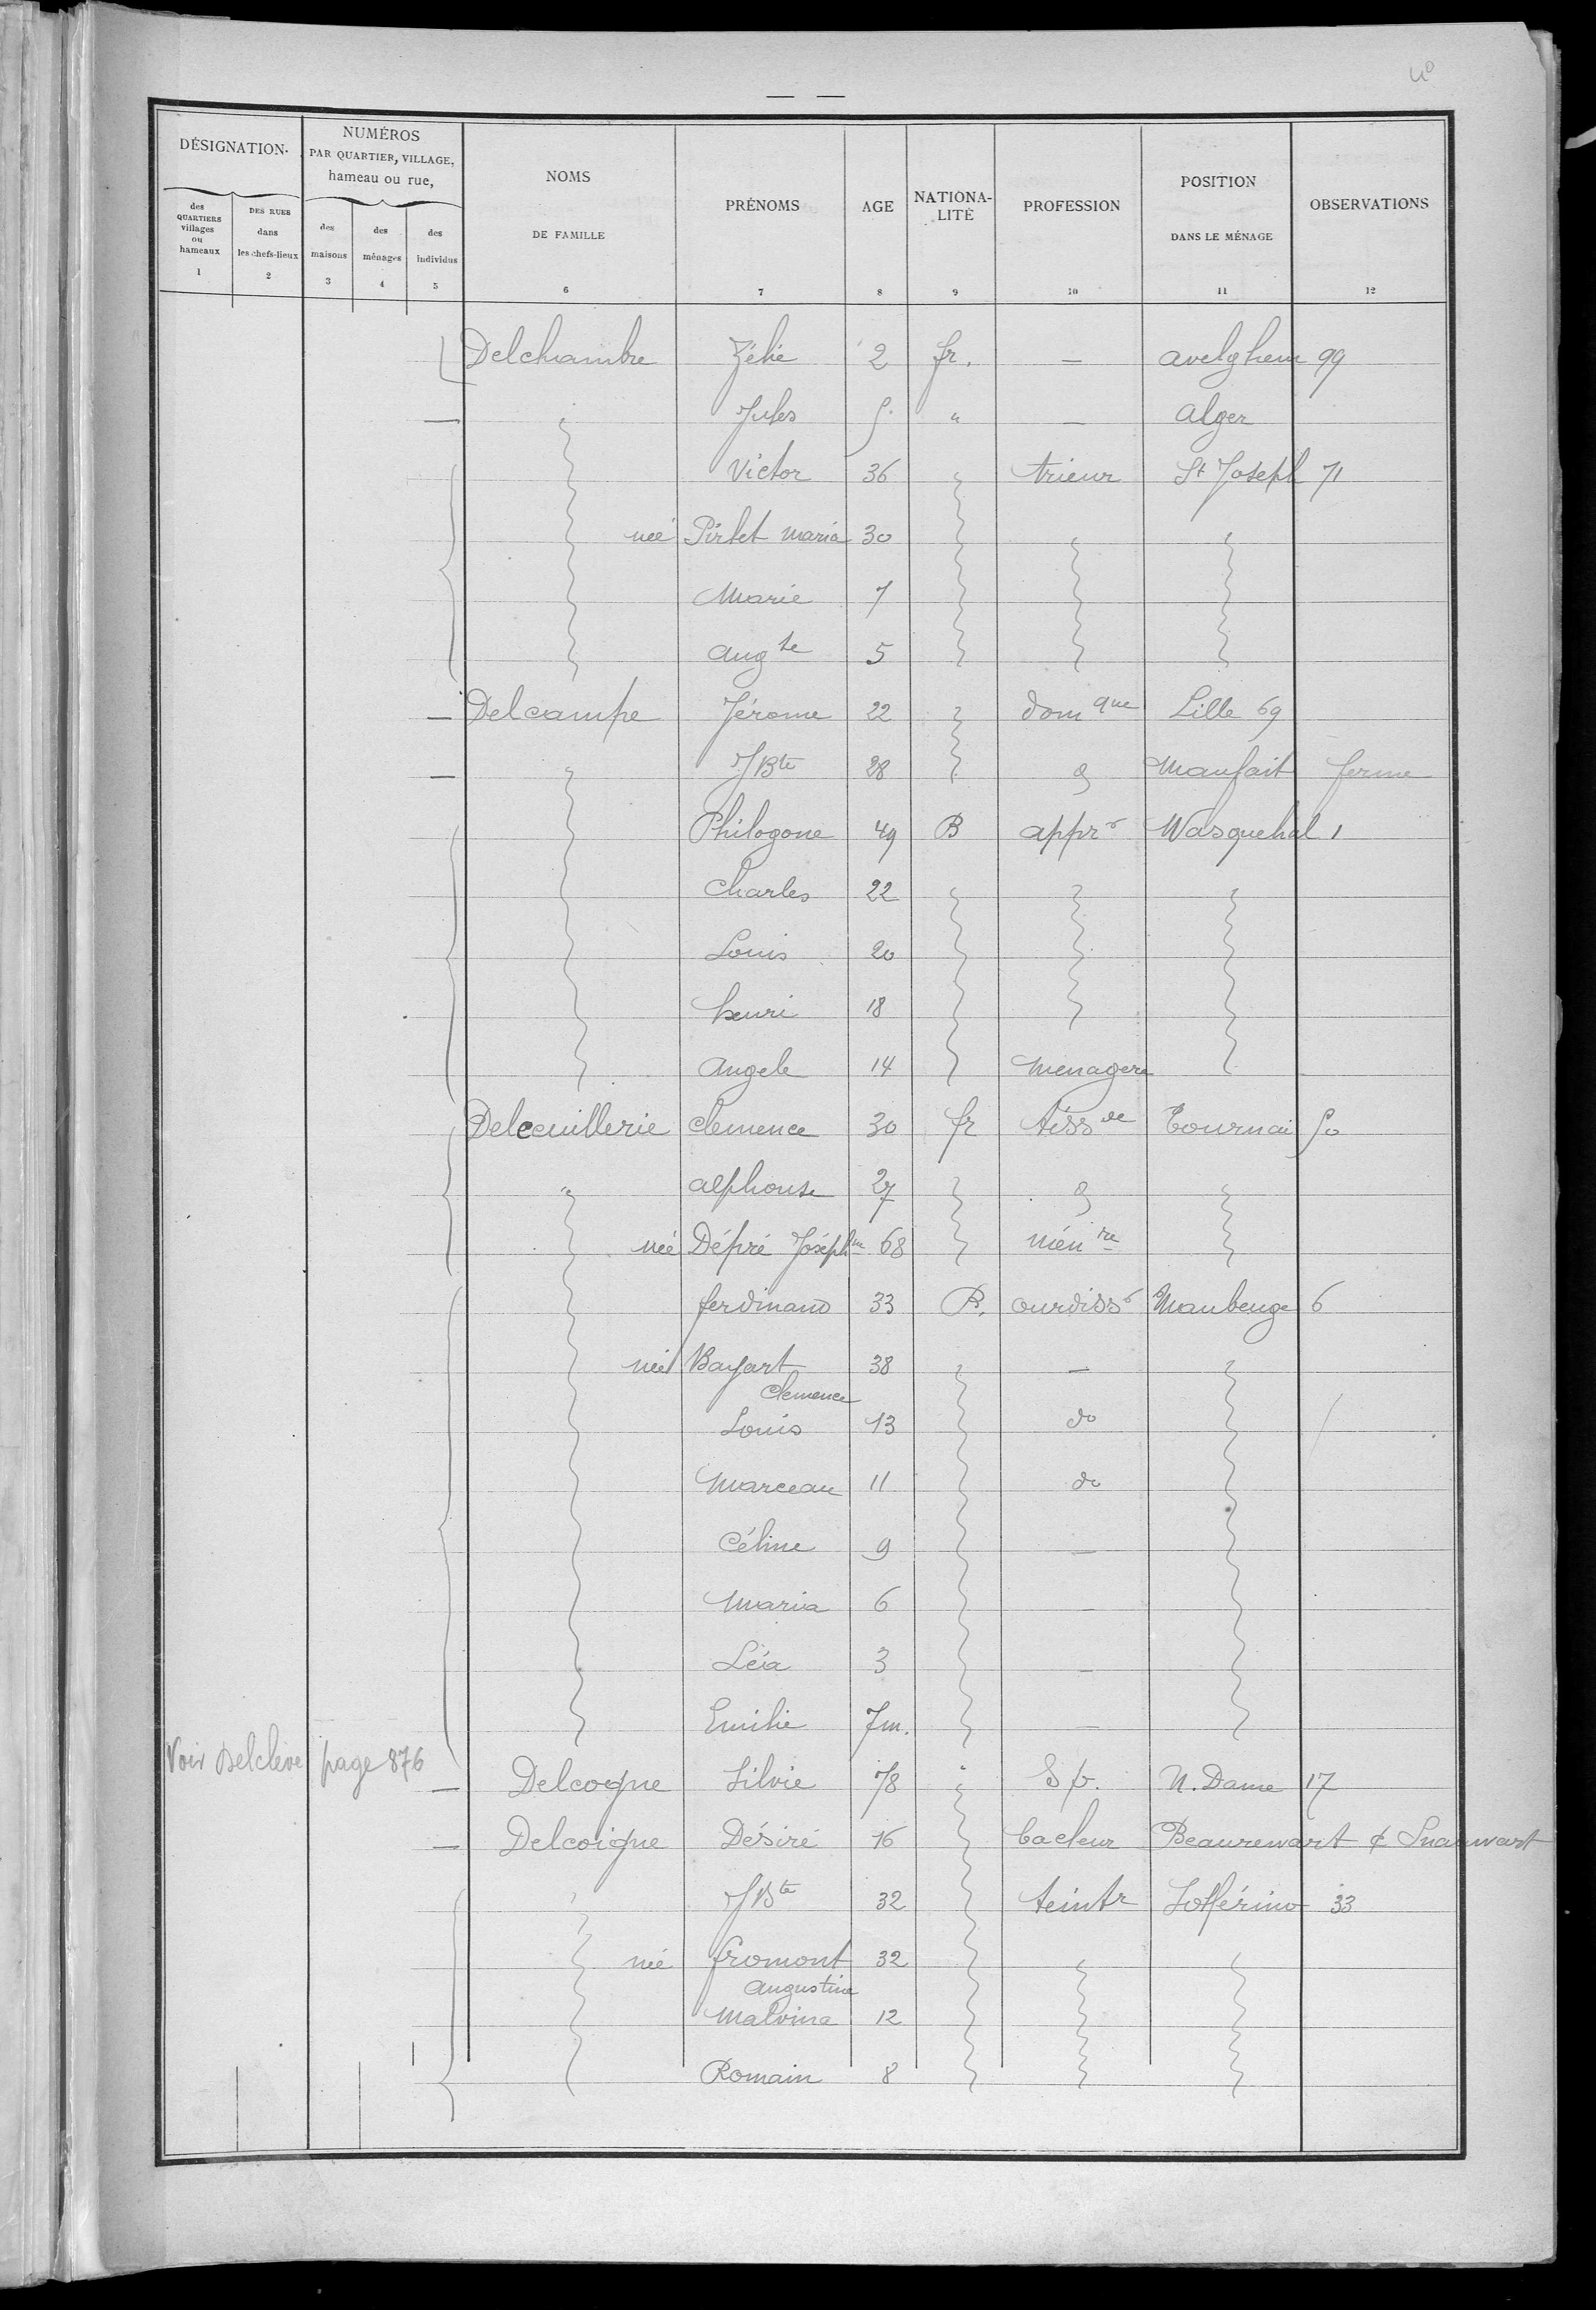 DÉSIGNATION
NUMÉROS
PAR QUARTIER, VILLAGE,
hameau ou rue,
des QUARTIERS villages ou hameaux
DES RUES dans les chefs-lieux
des maisons
des ménages
des individus
NOMS DE FAMILLE
PRÉNOMS
AGE
NATIONALITÉ
PROFESSION
POSITION DANS LE MÉNAGE
OBSERVATIONS
1 2 3 4 5 6 7 8 9 10 11 12
Delchambre Zélie 2 fr. — avelghem 99
— " Jules " — Alger
Victor 36 trieur St Joseph 71
née Pirlet maria 30
Marie 7
Aug te 5
— Delcampe Jérome 22 dom que Lille 69
— " JBte 28 Maufait ferme
Philogone 49 B appr Wasquehal 1
Charles 22
Louis 20
henri 18
Angele 14 menagere
Delceuillerie Clemence 30 fr tiss Tournai 50
" alphonse 27
née Dépré Joséph 68 mén re
ferdinand 33 B. ourdiss Maubeuge 6
née Bayart 38 —
Clemence
Louis 13 do
Marceau 11 do
Céline 9 —
Maria 6 —
Léa 3 —
Emilie 7m. —
Voir Delclève page 876
— Delcogne Silvie 78 " S p. N. Dame 17
— Delcoigne Désiré 16 bacleur Beaurewart &
JBte 32 teintr Solférino 33
née fromont 32
Augustine
Malvina 12
Romain 8